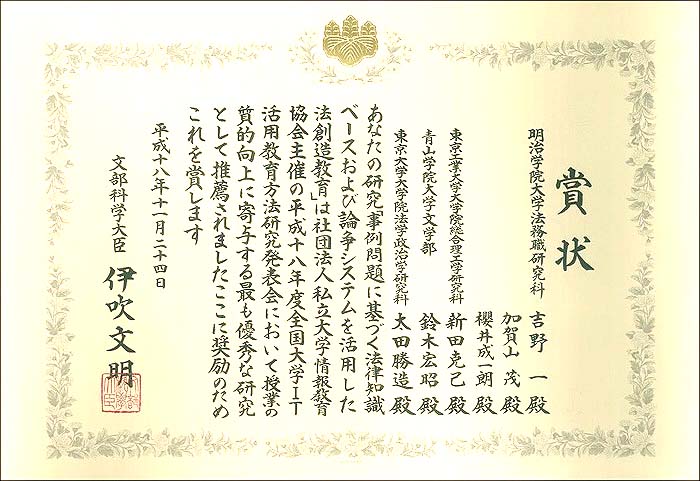 賞状
明治学院大学法務職研究科 吉野一殿
加賀山茂殿
櫻井成一朗殿
東京工業大学大学院総合理工学研究科 新田克己殿
青山学院大学文学部 鈴木宏昭殿
東京大学大学院法学政治学研究科 太田勝造殿
あなたの研究「事例問題に基づく法律知識
ベースおよび論争システムを活用した
法創造教育」は社団法人私立大学情報教育
協会主催の平成十八年度全国大学IT
活用教育方法研究発表会において授業の
質的向上に寄与する最も優秀な研究
として推薦されましたここに奨励のため
これを賞します
平成十八年十一月二十四日
文部科学大臣 伊吹文明